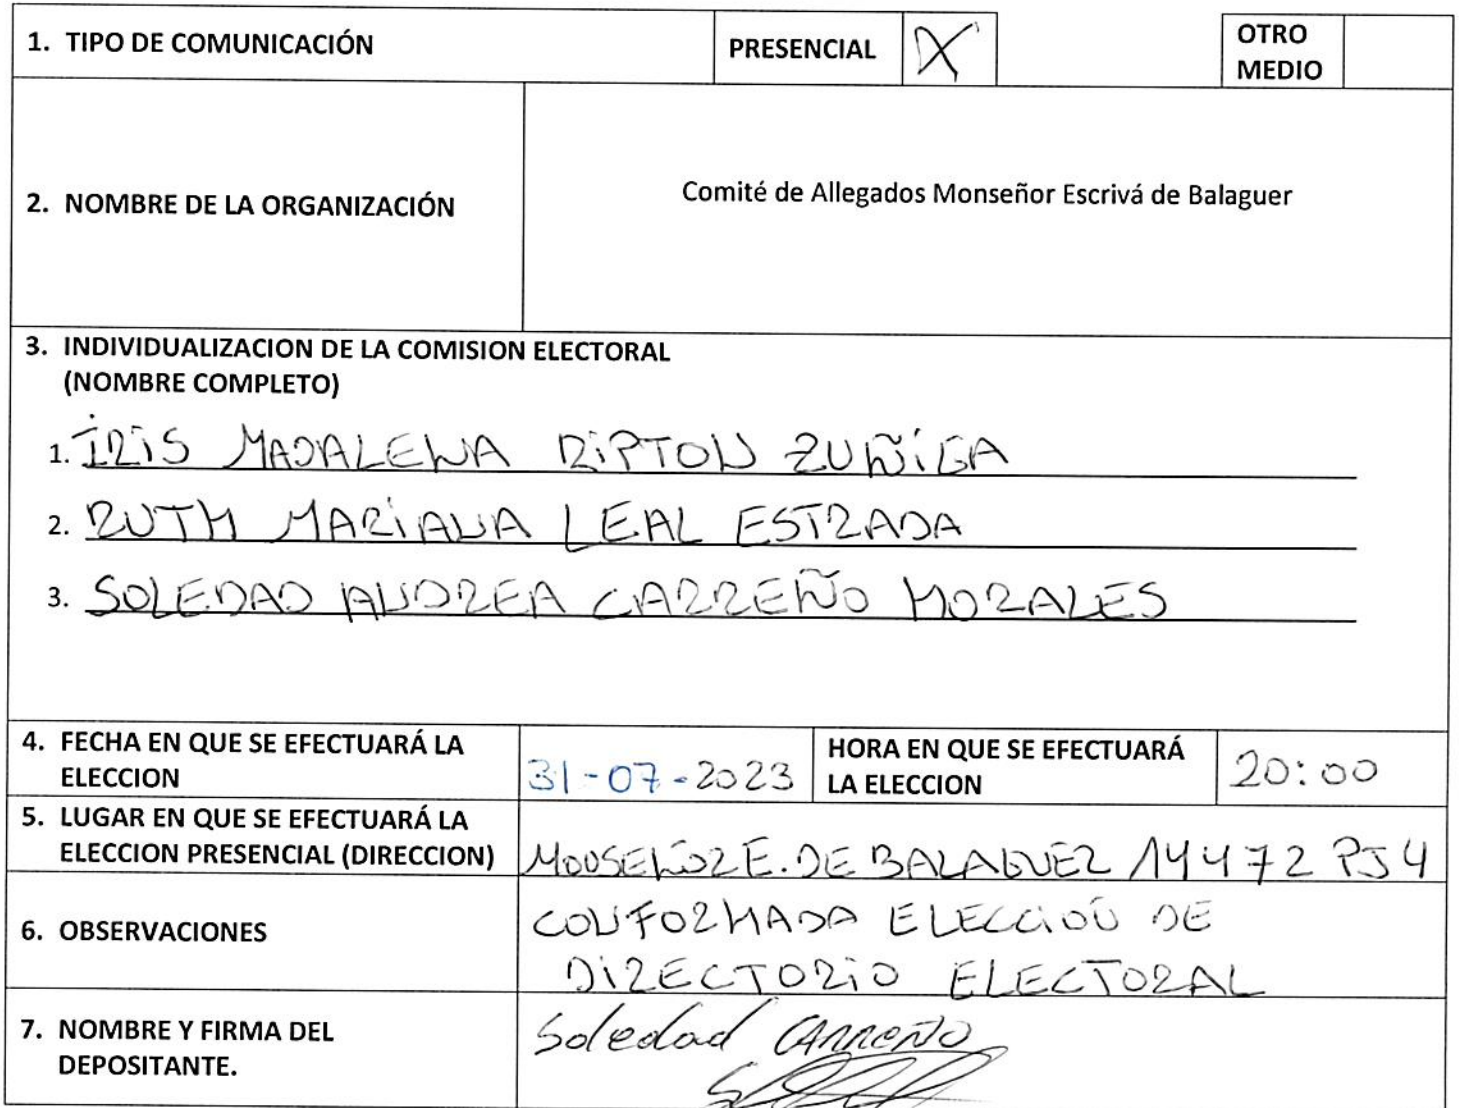 1. TIPO DE COMUNICACIÓN PRESENCIAL X OTRO MEDIO
2. NOMBRE DE LA ORGANIZACIÓN Comité de Allegados Monseñor Escrivá de Balaguer
3. INDIVIDUALIZACION DE LA COMISION ELECTORAL
(NOMBRE COMPLETO)
1. IRIS MADALENA RIPTON ZUÑIGA
2. RUTH MARIANA LEAL ESTRADA
3. SOLEDAD ANDREA CARREÑO MORALES
4. FECHA EN QUE SE EFECTUARÁ LA
ELECCION
31-07-2023
HORA EN QUE SE EFECTUARÁ
LA ELECCION
20:00
5. LUGAR EN QUE SE EFECTUARÁ LA
ELECCION PRESENCIAL (DIRECCION)
MONSEÑOR E. DE BALAGUER 14472 PJ 4
6. OBSERVACIONES
CONFORMADA ELECCION DE
DIRECTORIO ELECTORAL
7. NOMBRE Y FIRMA DEL
DEPOSITANTE.
Soledad CARREÑO